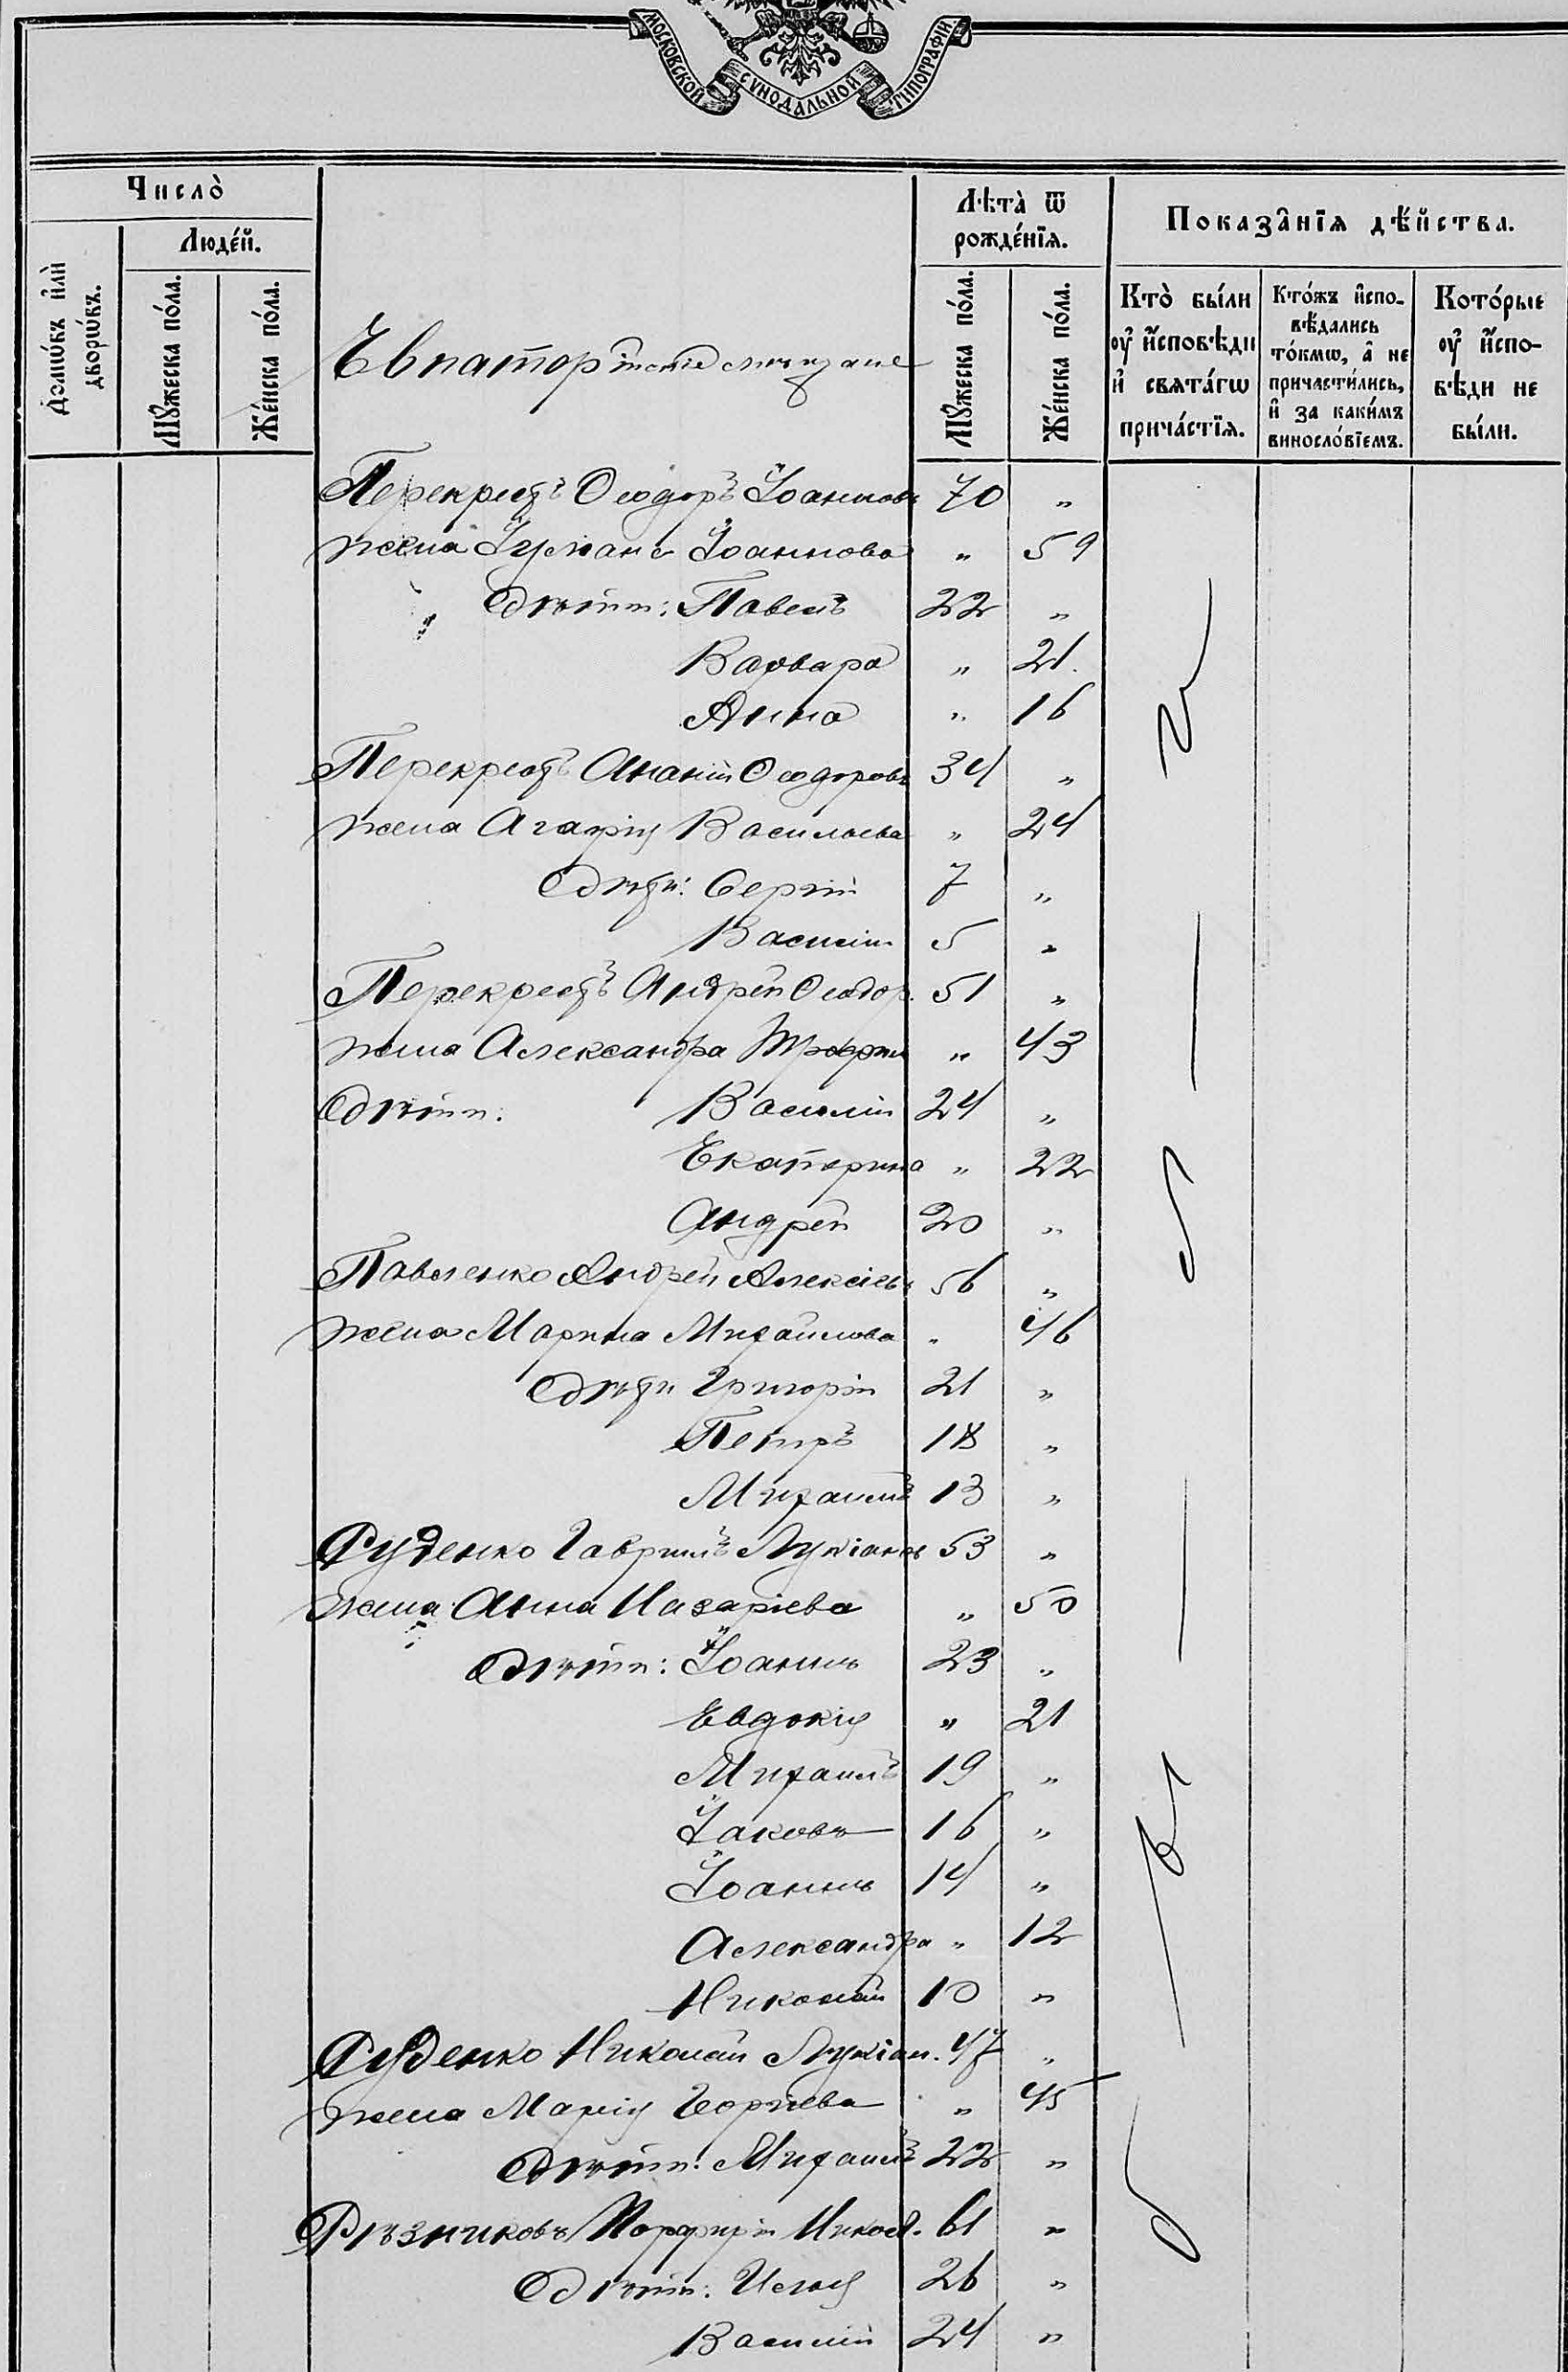 МОСКОВСКОЙ СѴНОДАЛЬНОЙ ТИПОГРАФІИ.
Число̀
Людéй.
Домѡ́въ и҆лѝ дворѡ́въ.
Мꙋ́жеска по́ла.
Же́нска по́ла.
Лѣ̑та ѿ рождéнїѧ.
Мꙋ́жеска по́ла.
Же́нска по́ла.
Показа̑нїѧ дѣ́йства.
Кто̀ бы́ли ᲂу҆ и҆сповѣди и҆ свѧта́гѡ прича́стїѧ.
Кто́жъ и҆спо-
вѣ́дались
то́кмѡ, а҆ не
причасти́лись,
и҆ за каки́мъ
винослóвїемъ.
Кото́рые ᲂу҆ и҆спо-
вѣди не бы́ли.
Евпаторійскіе мѣщане
Перекрестъ Ѳеодоръ Іоанновъ 70 „
жена Іуліанія Іоаннова „ 59
Дѣти: Павелъ 22 „
Варвара „ 21.
Анна „ 16
Перекрестъ Ананій Ѳеодоровъ 34 „
жена Агафія Васильева „ 24
Дѣти: Сергій 7 „
Василій 5 „
Перекрестъ Андрей Ѳеодор. 51 „
жена Александра Трофим „ 43
Дѣти: Василій 24 „
Екатерина „ 22
Андрей 20 „
Павленко Андрей Алексіевъ 56 „
жена Марина Михайлова „ 46
Дѣти Григорій 21 „
Петръ 18 „
Михаилъ 13 „
Руденко Гавриилъ Лукіановъ 53 „
жена Анна Назаріева „ 50
Дѣти: Іоаннъ 23 „
Евдокія „ 21
Михаилъ 19 „
Іаковъ 16 „
Іоаннъ 14 „
Александра „ 12
Николай 10 „
Руденко Николай Лукіан. 47 „
жена Марія Георгіева „ 45
Дѣти: Михаилъ 22 „
Рѣзниковъ Порфирій Никол. 61 „
Дѣти: Илія 26 „
Василій 24 „